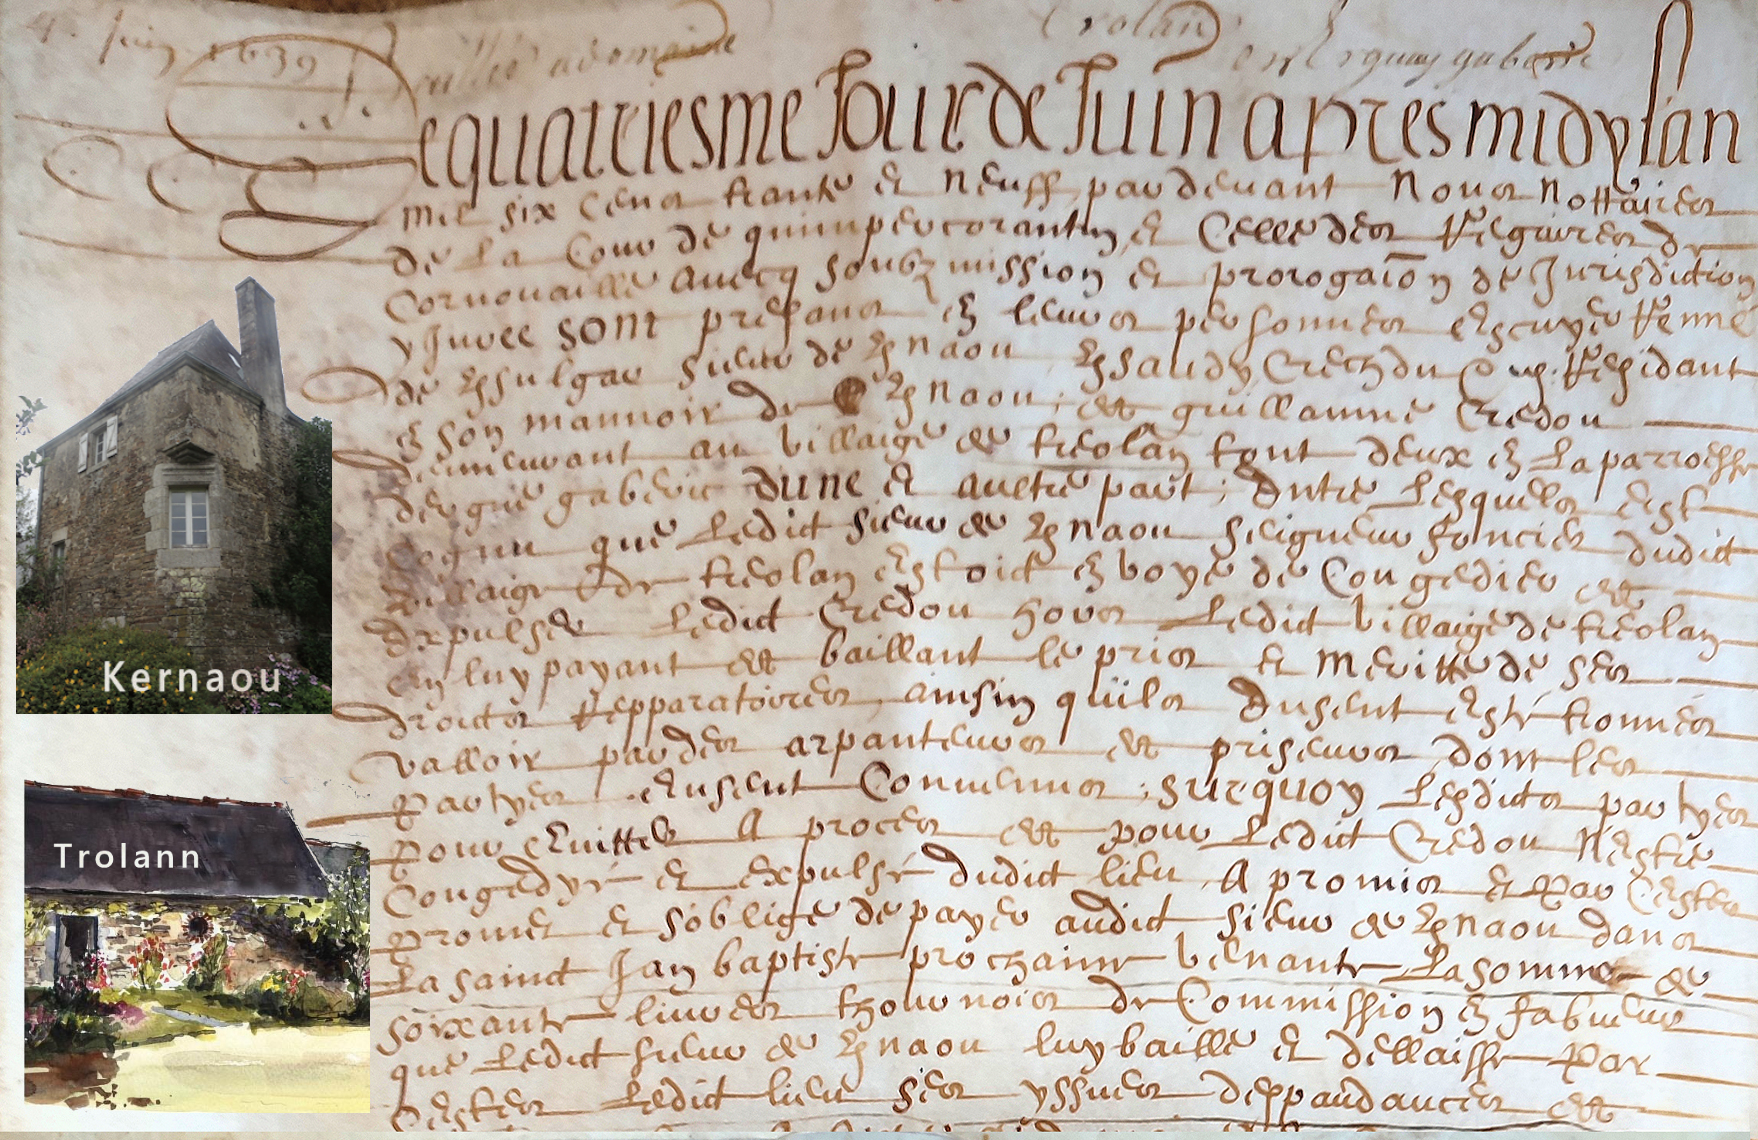 4e Juin 1639
Trolan
en Erguay gaberic
Le quatriesme Jour de Juin apres midy lan
mil six centz trante et neuff, par devant Nous Nottaires
de la Cour de quimpercorantin et Celle des Regaires de
Cornouaille avecq soubzmission et prorogaion de Jurisdiction
y Juree sont presantz en leurs personnes escuyer Renne
de Kersulgar sieur de Kernaou Kersaudy Crechdu Résidant
en son mannoir de Kernaou, et guillaume Credou
demeurant au villaige de treolan tout deux en la parroesse
dergue gaberic dune et aultre part; Entre Lesquels est
cognu que Ledict sieur de Kernaou seigneur foncier dudict
villaige de treolan estoict en voye de Congedier et
Expulser Ledict Credou hors Ledict villaige de treolan
en luy payant et baillant le prix et meritte de ses
droictz Repparatoires, ainsin quils Eusent estre trouves
valloir par des arpanteurs et priseurs dont les
partyes eusent Convenus; surquoy Lesdictz partyes
pour Evitter A proces et pour Ledict Credou Nestre
Congedyé et expulsé dudict lieu A promis et par Cestes
promet et soblige de payer audict sieur de Kernaou dans
La sainct Jan baptiste prochaine venante La somme de
soixante livres thournois de Commission en faveur
que Ledict sieur de Kernaou luy baille et dellaisse Par
Cestes Ledict lieu ses yssues deppandances et
Kernaou
Trolann